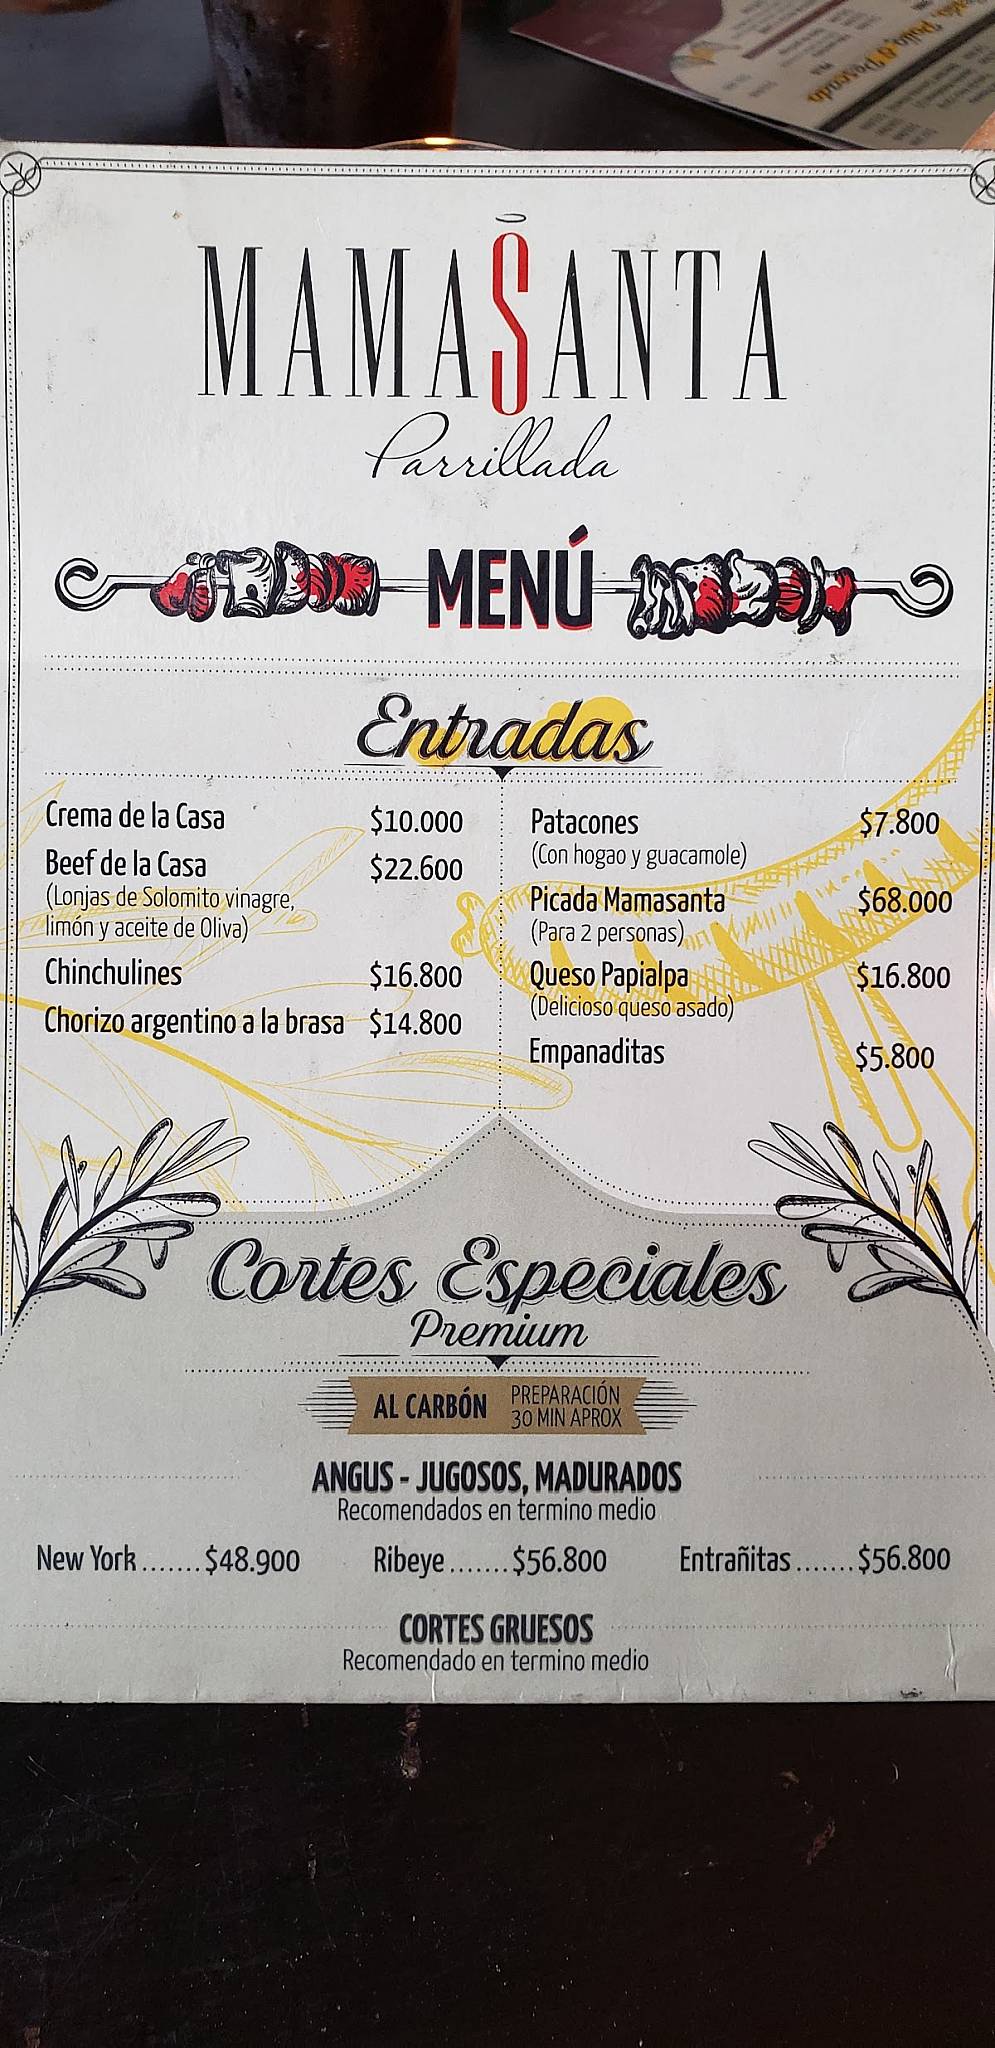 MAMASANTA
Parrillada
MENÚ
Entradas
Crema de la Casa $10.000
Beef de la Casa $22.600
(Lonjas de Solomito vinagre,
limón y aceite de Oliva)
Chinchulines $16.800
Chorizo argentino a la brasa $14.800
Patacones $7.800
(Con hogao y guacamole)
Picada Mamasanta $68.000
(Para 2 personas)
Queso Papialpa $16.800
(Delicioso queso asado)
Empanaditas $5.800
Cortes Especiales
Premium
AL CARBÓN PREPARACIÓN
30 MIN APROX
ANGUS - JUGOSOS, MADURADOS
Recomendados en termino medio
New York.......$48.900 Ribeye.......$56.800 Entrañitas.......$56.800
CORTES GRUESOS
Recomendado en termino medio